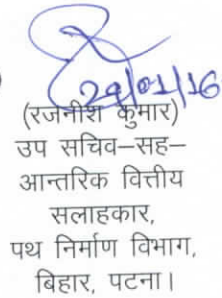 29/01/16
(रजनीश कुमार)
उप सचिव–सह–
आन्तरिक वित्तीय
सलाहकार,
पथ निर्माण विभाग,
बिहार, पटना।